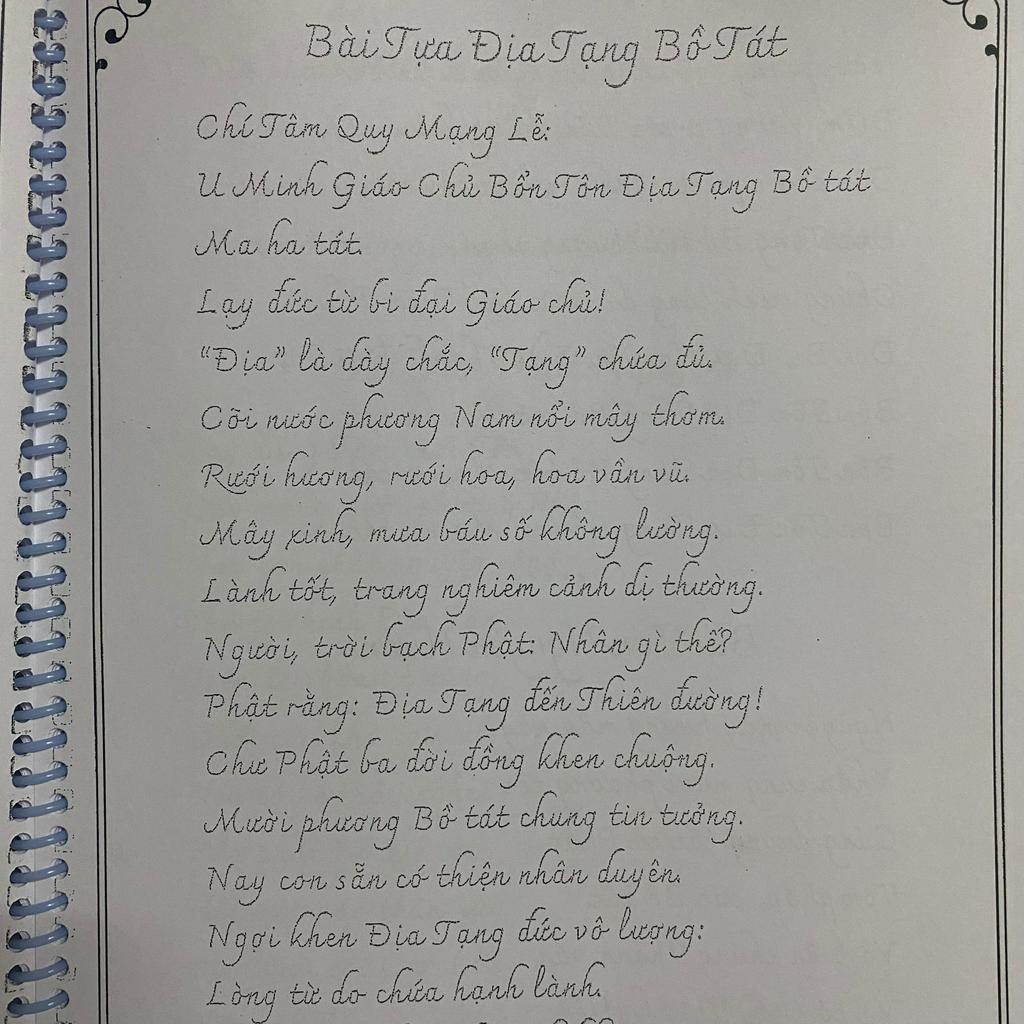 Bài Tựa Địa Tạng Bồ Tát
Chí Tâm Quy Mạng Lễ:
U Minh Giáo Chủ Bổn Tôn Địa Tạng Bồ tát
Ma ha tát.
Lạy đức từ bi đại Giáo chủ!
“Địa” là dày chắc, “Tạng” chứa đủ.
Cõi nước phương Nam nổi mây thơm.
Rưới hương, rưới hoa, hoa vần vũ.
Mây xinh, mưa báu số không lường.
Lành tốt, trang nghiêm cảnh dị thường.
Người, trời bạch Phật: Nhân gì thế?
Phật rằng: Địa Tạng đến Thiên đường!
Chư Phật ba đời đồng khen chuộng.
Mười phương Bồ tát chung tin tưởng.
Nay con sẵn có thiện nhân duyên.
Ngợi khen Địa Tạng đức vô lượng:
Lòng từ do chứa hạnh lành.